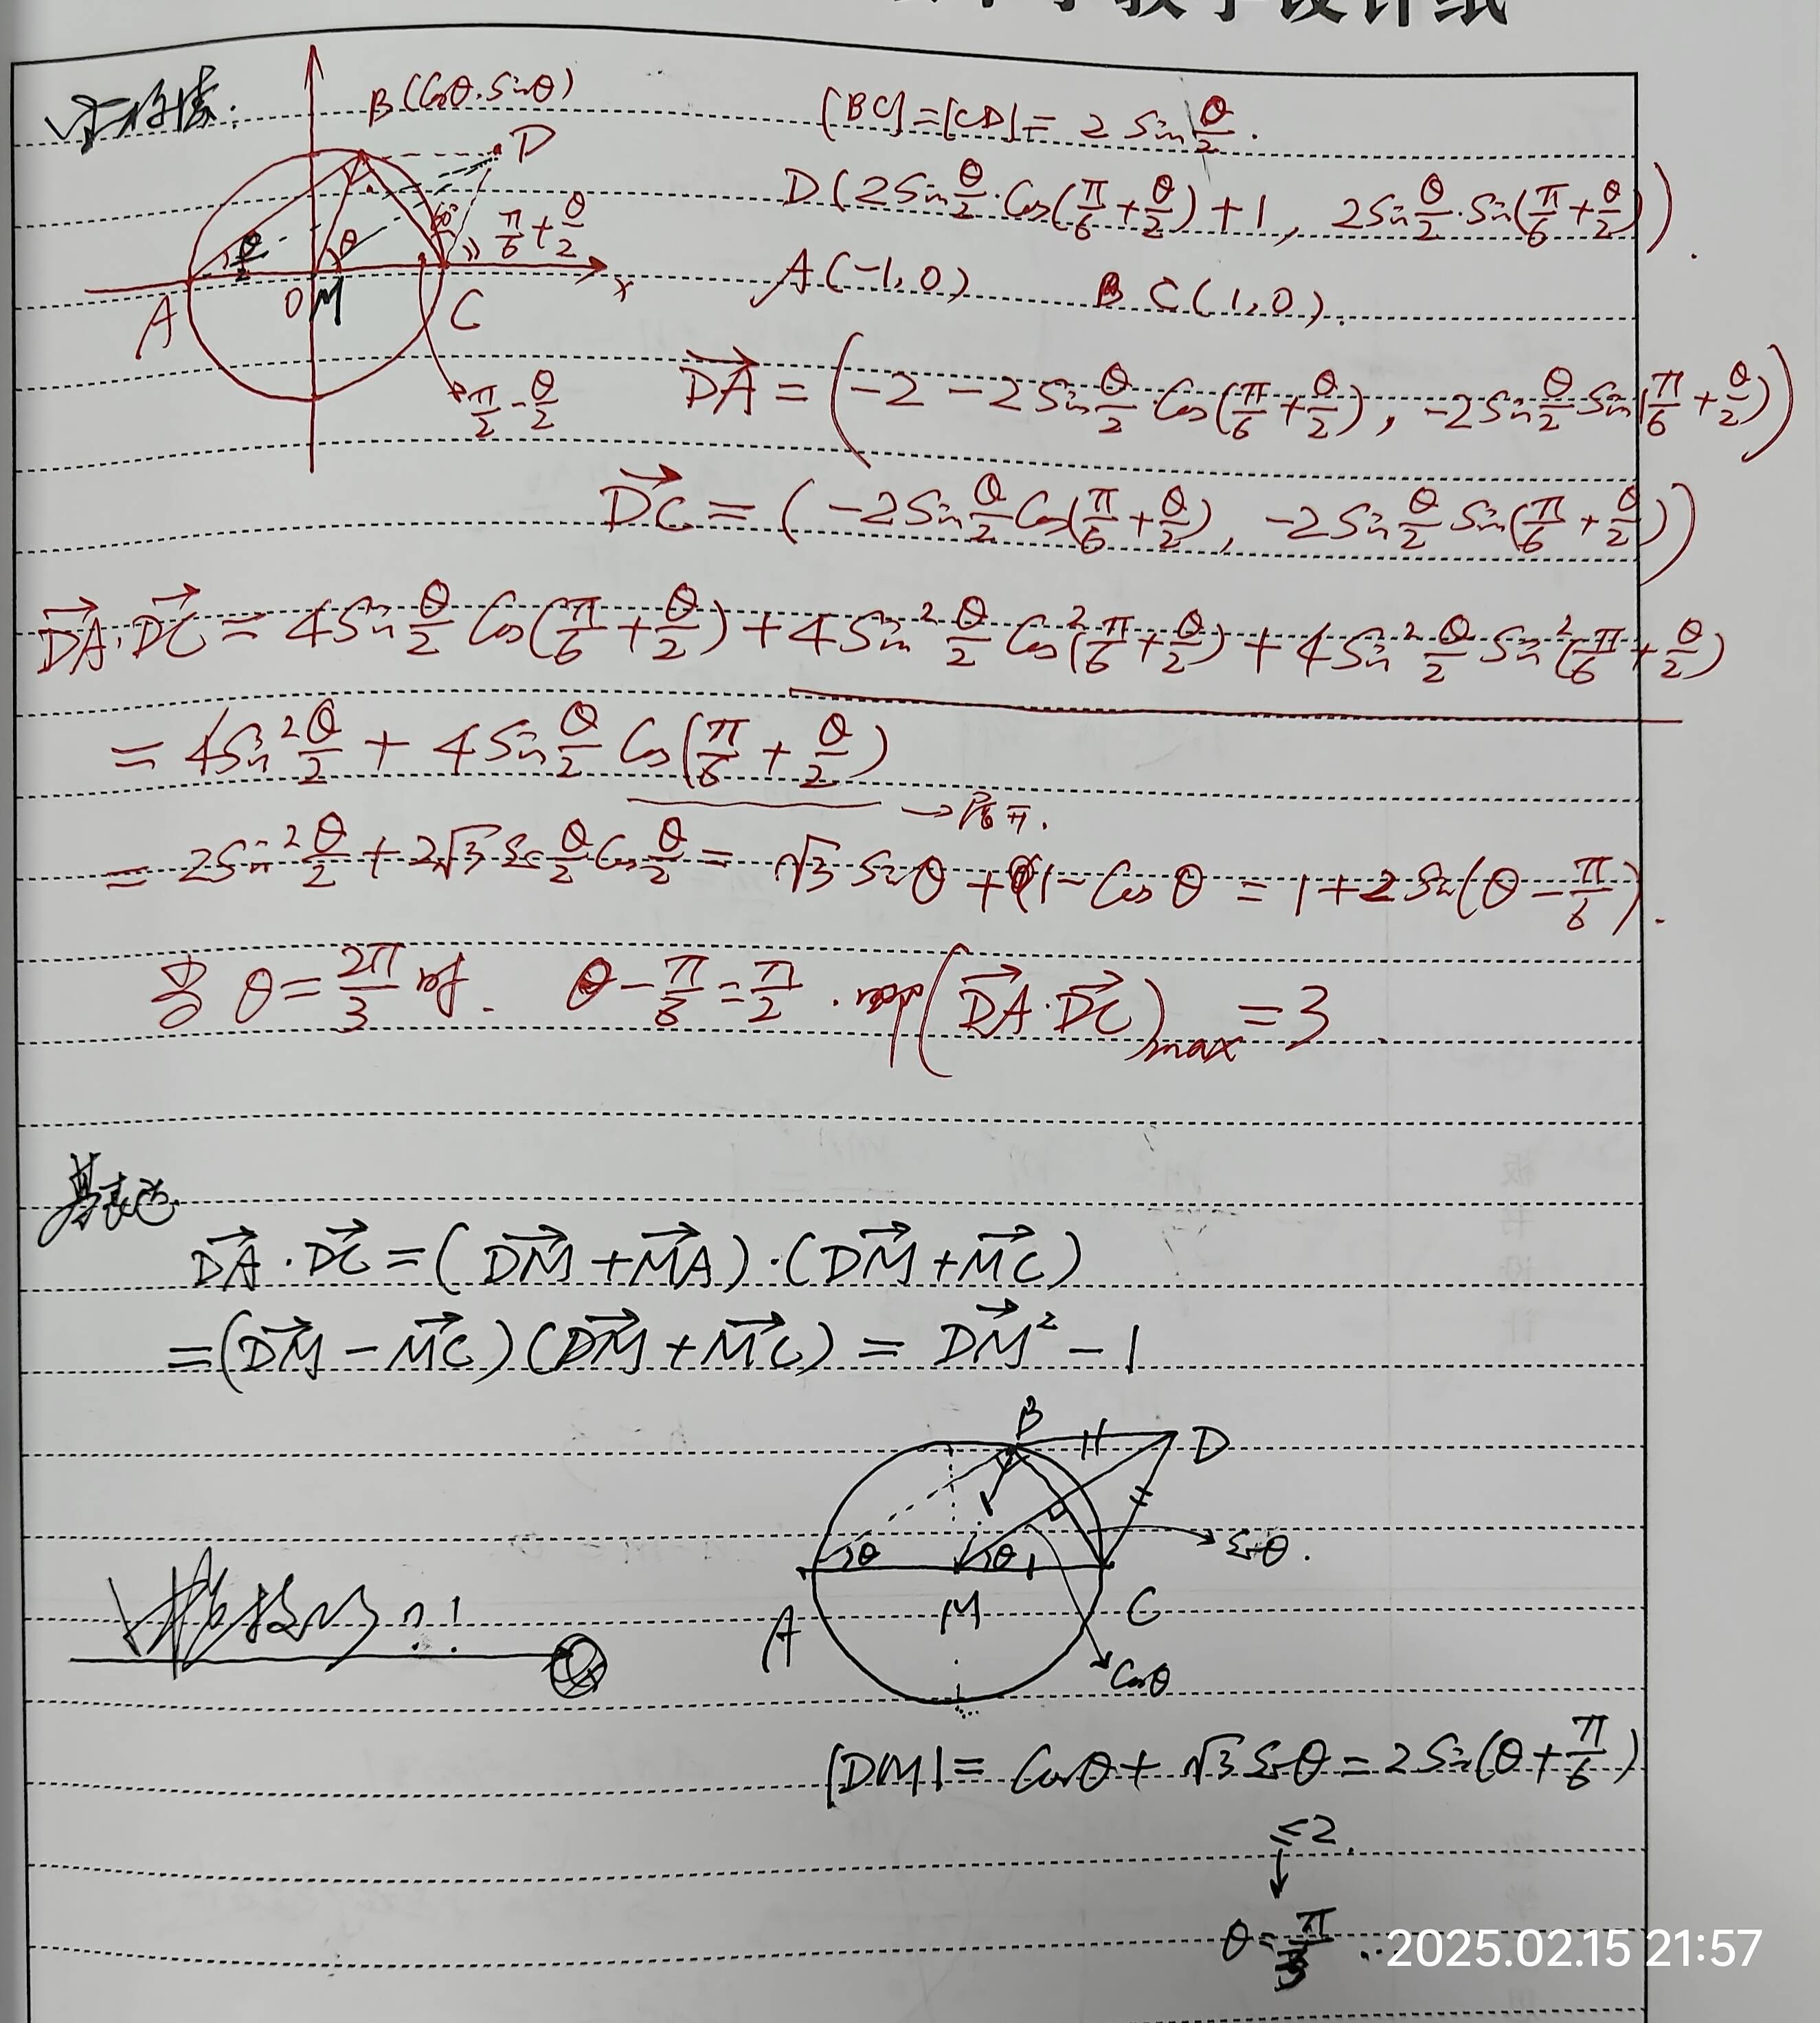 教学设计纸
B(Cosθ, Sinθ)
D
θ/2
θ
60°
π/6+θ/2
A
O M
C
x
π/2-θ/2
|BC|=|CD|= 2 Sin θ/2.
D(2Sin θ/2·Cos(π/6+θ/2)+1, 2Sin θ/2·Sin(π/6+θ/2)).
A(-1,0) C(1,0).
DA→ = (-2-2Sin θ/2 Cos(π/6+θ/2), -2Sin θ/2 Sin(π/6+θ/2))
DC→ = (-2Sin θ/2 Cos(π/6+θ/2), -2Sin θ/2 Sin(π/6+θ/2))
DA→·DC→ = 4Sin θ/2 Cos(π/6+θ/2)+4Sin² θ/2 Cos²(π/6+θ/2)+4Sin² θ/2 Sin²(π/6+θ/2)
= 4Sin² θ/2 + 4Sin θ/2 Cos(π/6+θ/2)
→展开.
= 2Sin² θ/2 + 2√3 Sin θ/2 Cos θ/2 = √3 Sinθ + 1-Cosθ = 1+2Sin(θ-π/6).
当 θ=2π/3 时. θ-π/6=π/2. (DA→·DC→)max = 3.
DA→·DC→=(DM→+MA→)·(DM→+MC→)
=(DM→-MC→)(DM→+MC→) = DM→²-1
B
D
θ
θ
1
Sinθ.
A
M
C
Cosθ
|DM|= Cosθ+√3Sinθ=2Sin(θ+π/6)
≤2.
↓
θ=π/3
2025.02.15 21:57